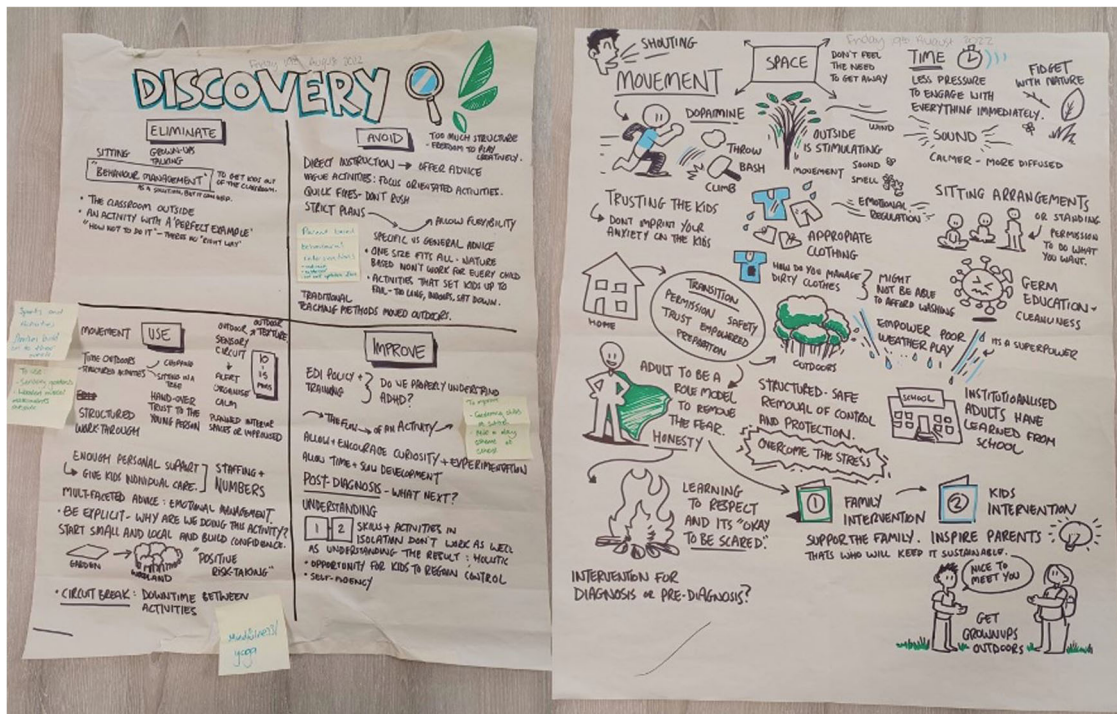 Friday 19th August 2022
DISCOVERY
ELIMINATE
SITTING
GROWN-UPS
TALKING
"BEHAVIOUR MANAGEMENT"
TO GET KIDS OUT
OF THE CLASSROOM.
AS A SOLUTION, BUT IT CAN HELP.
• THE CLASSROOM OUTSIDE
• AN ACTIVITY WITH A 'PERFECT EXAMPLE'
"HOW NOT TO DO IT" - THERE'S NO "RIGHT WAY"
AVOID
TOO MUCH STRUCTURE
- FREEDOM TO PLAY
CREATIVELY.
DIRECT INSTRUCTION → OFFER ADVICE
VAGUE ACTIVITIES: FOCUS ORIENTATED ACTIVITIES.
QUICK FIRES - DON'T RUSH
STRICT PLANS
ALLOW FLEXIBILITY
SPECIFIC VS GENERAL ADVICE
• ONE SIZE FITS ALL - NATURE
BASED WON'T WORK FOR EVERY CHILD
• ACTIVITIES THAT SET KIDS UP TO
FAIL - TOO LONG, INDOORS, SAT DOWN.
TRADITIONAL
TEACHING METHODS MOVED OUTDOORS.
Sports and
activities
MOVEMENT
USE
OUTDOOR
SENSORY
CIRCUIT
OUTDOOR
TEXTURE
TIME OUTDOORS
STRUCTURED ACTIVITIES
CHOPPING
SITTING IN A
TREE
10
-
15
MINS
To use:
- Sensory gardens
ALERT
ORGANISE
CALM
HAND-OVER
TRUST TO THE
YOUNG PERSON
STRUCTURED
WORK THROUGH
PLANNED INTERIOR
SPACES OR IMPROVISED
ENOUGH PERSONAL SUPPORT
↳ GIVE KIDS INDIVIDUAL CARE.
STAFFING +
NUMBERS
MULTI-FACETED ADVICE: EMOTIONAL MANAGEMENT.
• BE EXPLICIT - WHY ARE WE DOING THIS ACTIVITY?
START SMALL AND LOCAL AND BUILD CONFIDENCE.
GARDEN
WOODLAND
"POSITIVE
RISK-TAKING"
• CIRCUIT BREAK: DOWNTIME BETWEEN
ACTIVITIES
Mindfulness/
yoga
IMPROVE
EDI POLICY +
TRAINING
DO WE PROPERLY UNDERSTAND
ADHD?
THE FLOW OF AN ACTIVITY
To improve
ALLOW + ENCOURAGE CURIOSITY + EXPERIMENTATION
ALLOW TIME + SKILL DEVELOPMENT
POST-DIAGNOSIS - WHAT NEXT?
UNDERSTANDING
1 2 SKILLS + ACTIVITIES IN
ISOLATION DON'T WORK AS WELL
AS UNDERSTANDING THE RESULT: HOLISTIC
• OPPORTUNITY FOR KIDS TO REGAIN CONTROL
• SELF-AGENCY
Friday 19th August 2022
SHOUTING
MOVEMENT
SPACE
DON'T FEEL
THE NEED
TO GET AWAY
TIME
LESS PRESSURE
TO ENGAGE WITH
EVERYTHING IMMEDIATELY.
FIDGET
WITH NATURE
DOPAMINE
THROW
BASH
CLIMB
WIND
OUTSIDE
IS STIMULATING
MOVEMENT
SOUND
SMELL
SOUND
CALMER - MORE DIFFUSED
EMOTIONAL
REGULATION
TRUSTING THE KIDS
↳ DON'T IMPRINT YOUR
ANXIETY ON THE KIDS
APPROPIATE
CLOTHING
SITTING ARRANGEMENTS
OR STANDING
PERMISSION
TO DO WHAT
YOU WANT.
HOW DO YOU MANAGE
DIRTY CLOTHES
MIGHT
NOT BE ABLE
TO AFFORD WASHING
GERM
EDUCATION +
CLEANLINESS
HOME
TRANSITION
PERMISSION SAFETY
TRUST EMPOWERED
PREPARATION
OUTDOORS
EMPOWER POOR
WEATHER PLAY
ITS A SUPERPOWER
ADULT TO BE A
ROLE MODEL
TO REMOVE
THE FEAR.
HONESTY
STRUCTURED - SAFE
REMOVAL OF CONTROL
AND PROTECTION.
OVERCOME THE STRESS
SCHOOL
INSTITIONALISED
ADULTS HAVE
LEARNED FROM
SCHOOL
LEARNING
TO RESPECT
AND ITS "OKAY
TO BE SCARED".
1
FAMILY
INTERVENTION
2
KIDS
INTERVENTION
SUPPORT THE FAMILY. INSPIRE PARENTS
THATS WHO WILL KEEP IT SUSTAINABLE.
INTERVENTION FOR
DIAGNOSIS OR PRE-DIAGNOSIS?
NICE TO
MEET YOU
GET
GROWNUPS
OUTDOORS